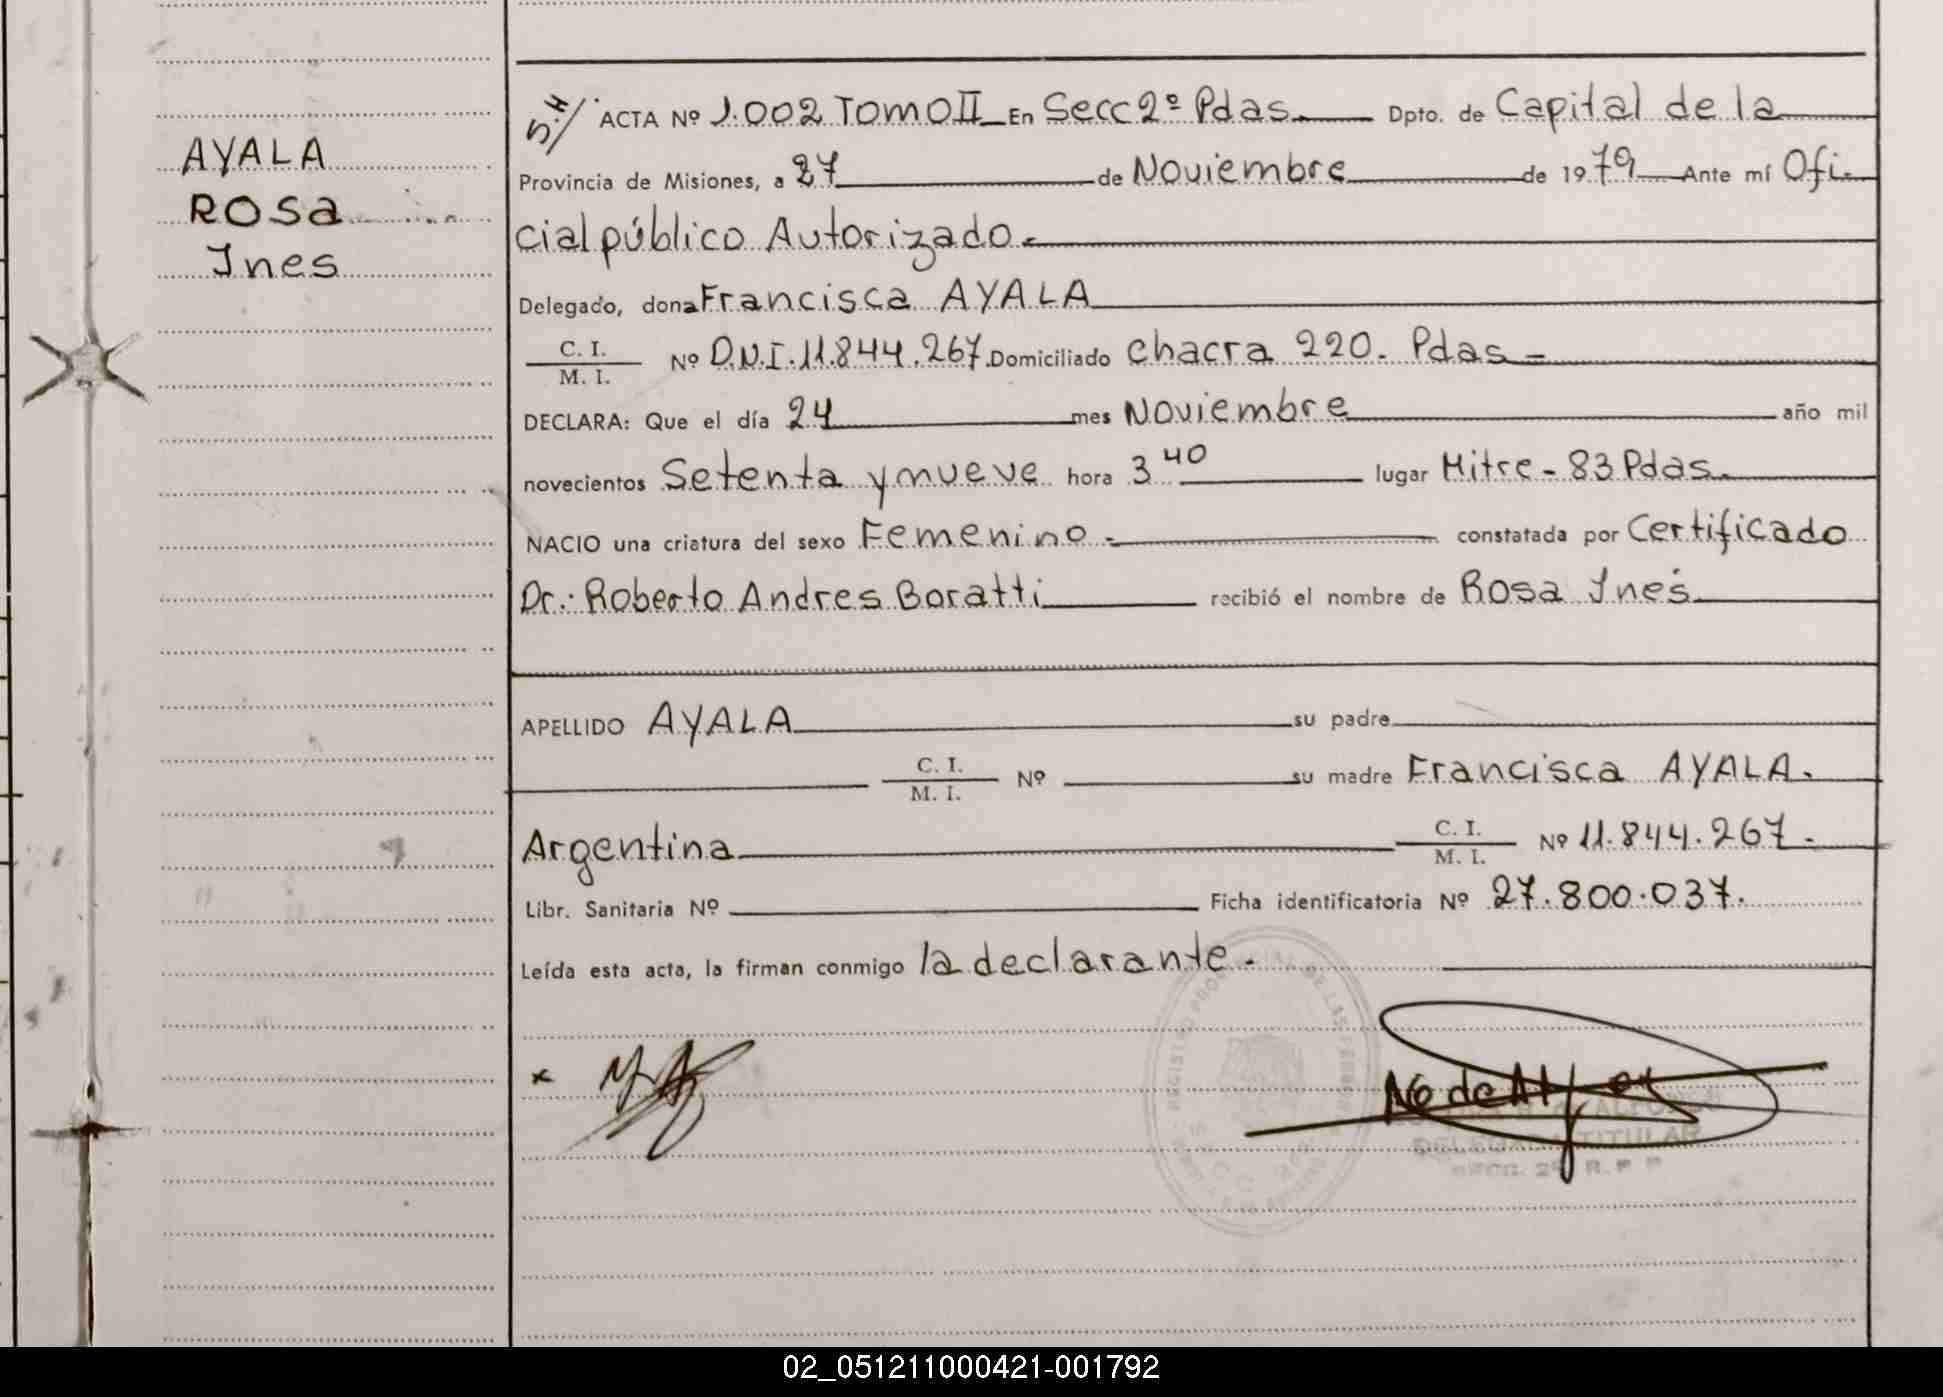 AYALA
ROSA
Ines
ACTA Nº 1.002 TOMO II En Secc 2º Pdas. Dpto. de Capital de la
Provincia de Misiones, a 27 de Noviembre de 1979 Ante mí Ofi-
cial público Autorizado.-
Delegado, dona Francisca AYALA
C. I.
M. I. Nº D.N.I. 11.844.267 Domiciliado chacra 220. Pdas-
DECLARA: Que el día 24 mes Noviembre año mil
novecientos Setenta y nueve hora 3 40 lugar Mitre - 83 Pdas.
NACIO una criatura del sexo Femenino.- constatada por Certificado
Dr.: Roberto Andres Boratti recibió el nombre de Rosa Inés
APELLIDO AYALA su padre
C. I.
M. I. Nº su madre Francisca AYALA.
Argentina C. I.
M. I. Nº 11.844.267.-
Libr. Sanitaria Nº Ficha identificatoria Nº 27.800.037.
Leída esta acta, la firman conmigo la declarante.-
DELEGADA TITULAR
02_051211000421-001792